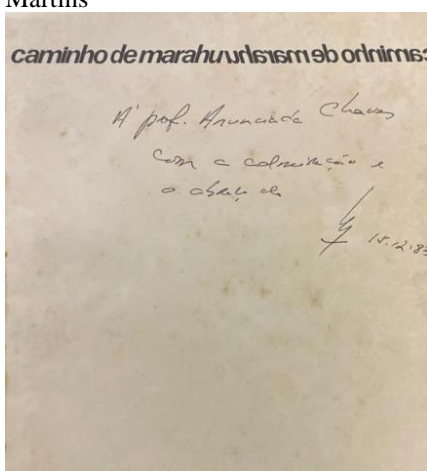 Martins
caminho de marahu
À prof. Anunciada Chaves
com a admiração e
o abraço de
15.12.83